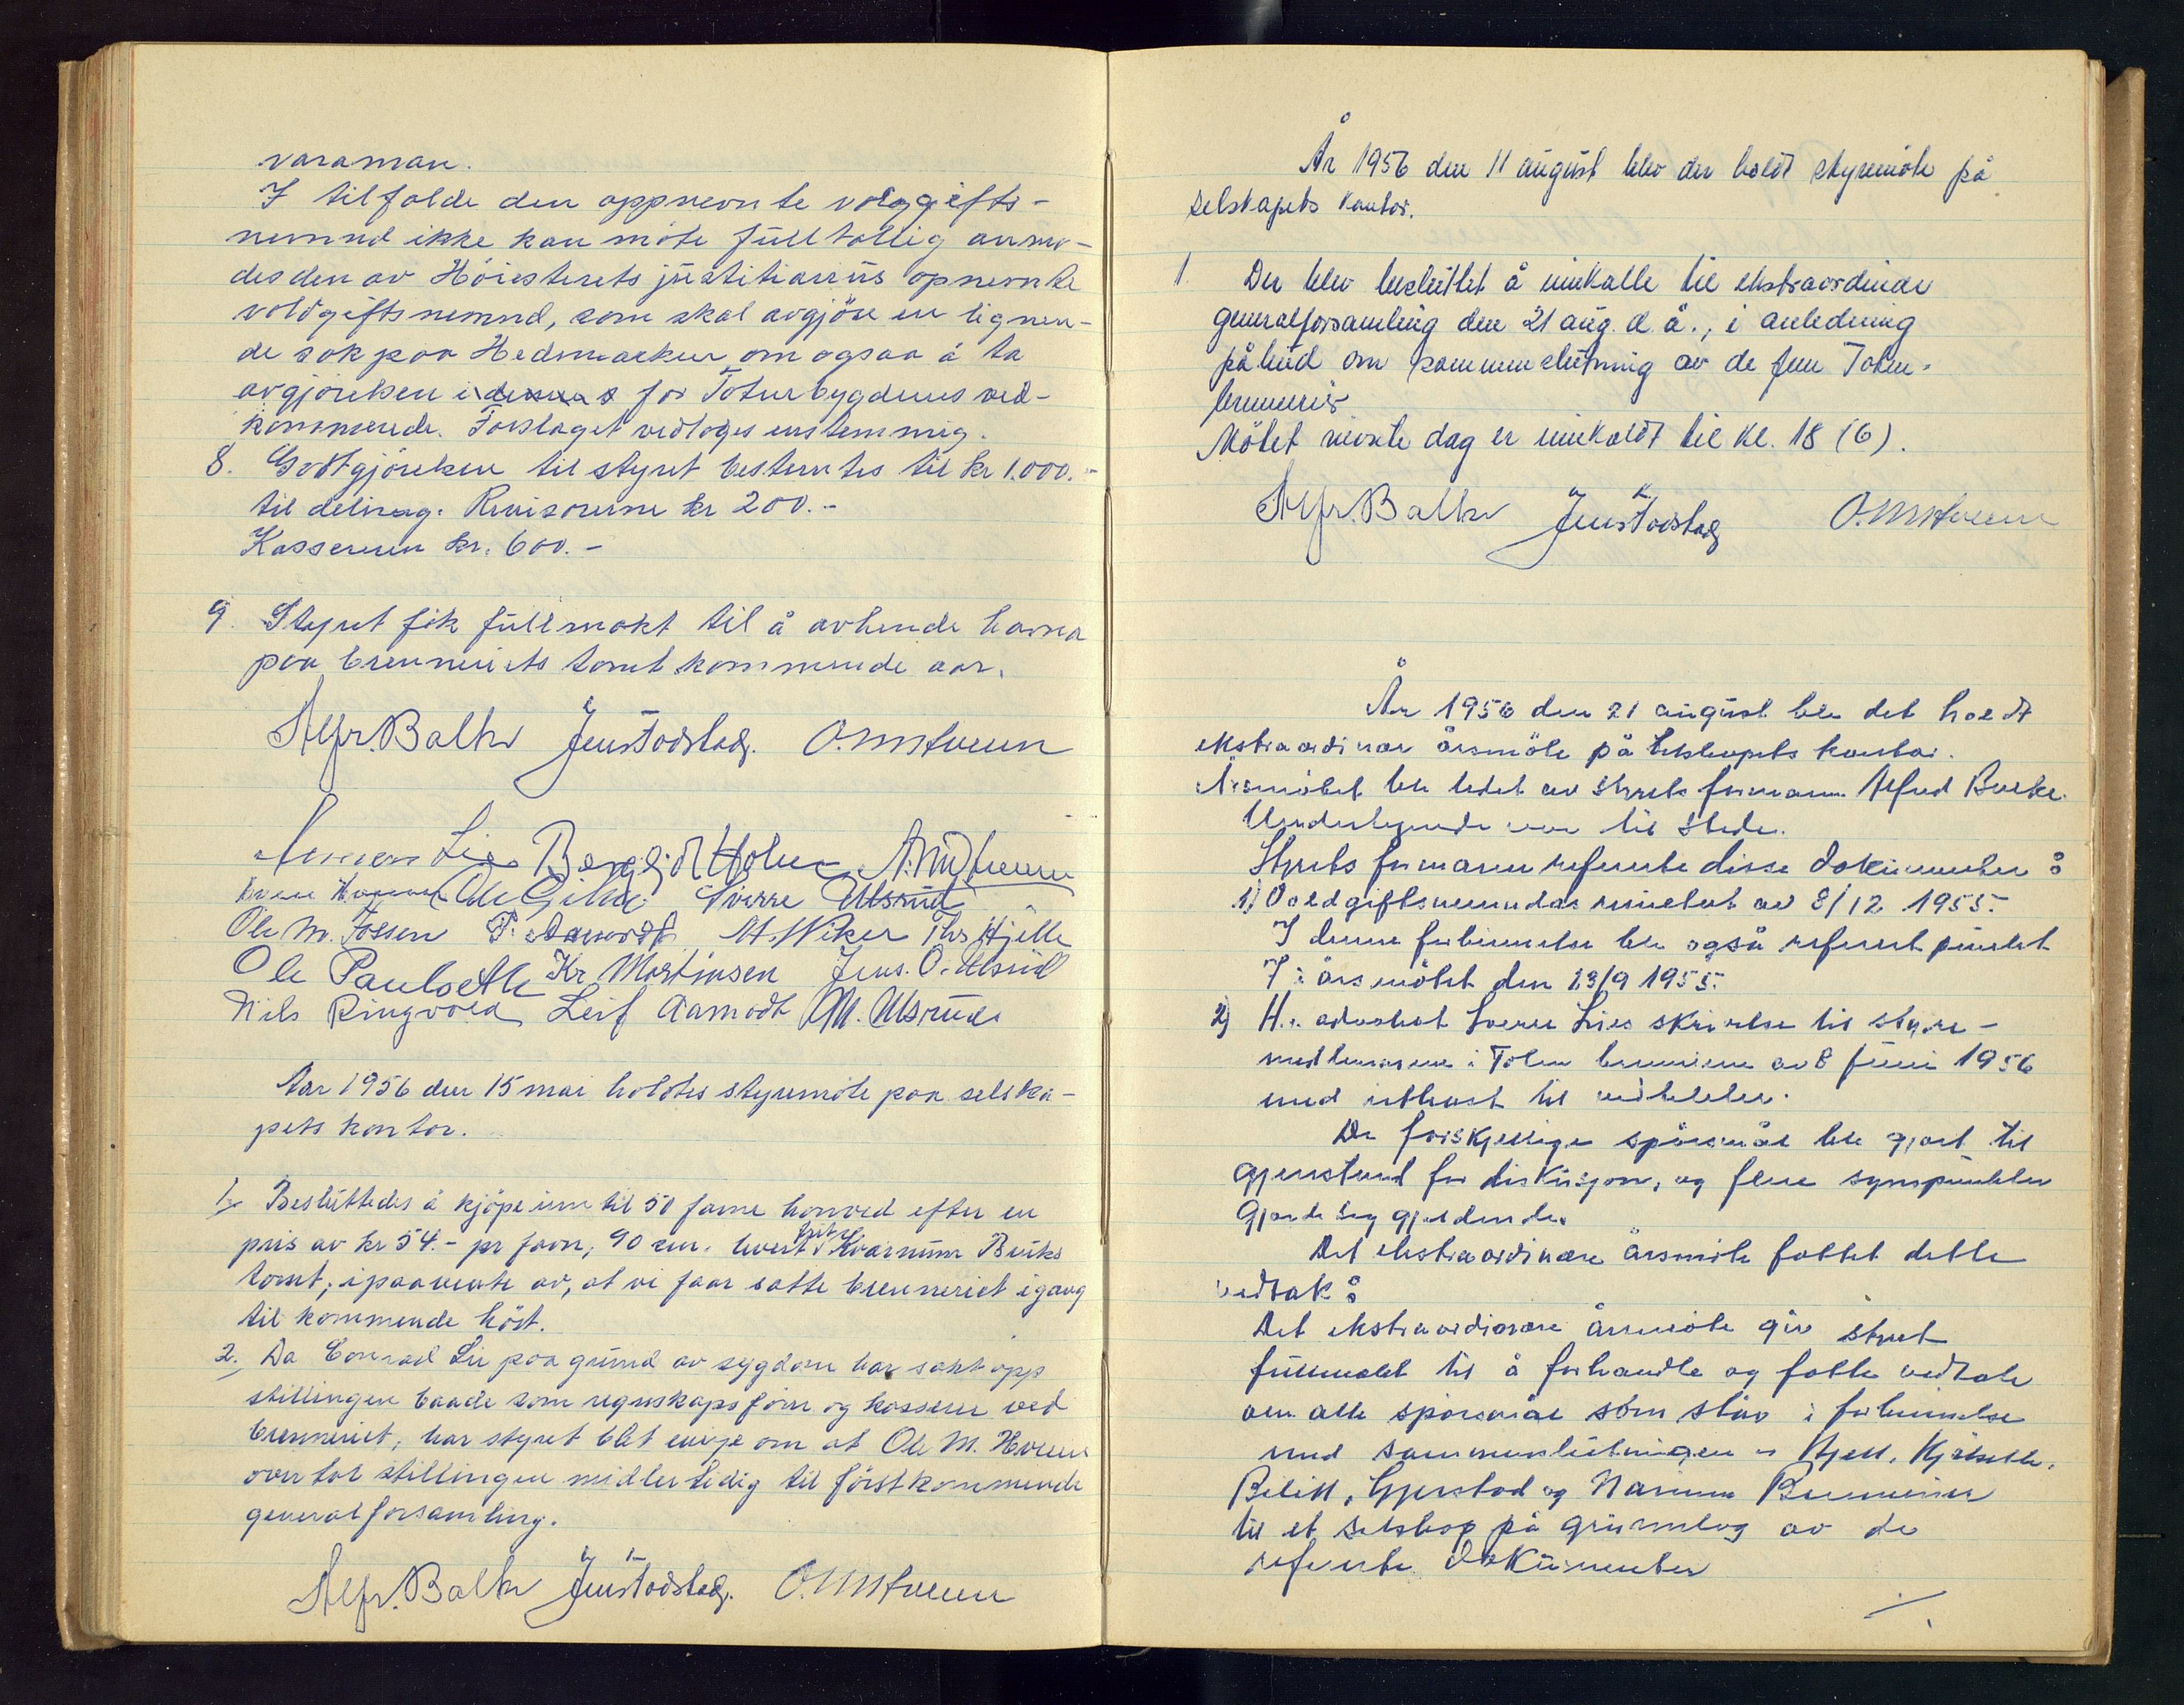 varaman.
I tilfælde den oppnevnte voldgifts-
nemnd ikke kan møte fulltallig anmo-
des den av Höiesterets justitiarius opnevnte
voldgiftsnemnd, som skal avgjöre en lignen-
de sak paa Hedmarken om ogsaa å ta
avgjörelsen for Totenbygdenes ved-
kommende. Forslaget vedtoges enstemmig.
8. Godtgjörelsen til styret bestemtes til kr 1.000.-
til deling. Revisorerne kr 200.-
Kassereren kr. 600.-
9. Styret fik fullmakt til å avhende havna
paa brenneriets tomt kommende aar.
Alfr. Balke Jens Todstad. O. M. Hveem
Lie A. M. Hveem
Ole Gihle Sverre Ulsrud
Ole M. Fossen F. Aamodt M. Viker Ths Hjelle
Ole Paulseth Kr Martinsen Jens. O. Ulsrud
Nils Ringvold Leif Aamodt M. Ulsrud
Aar 1956 den 15 mai holdtes styremöte paa selska-
pets kontor.
1. Besluttedes å kjöpe inn til 50 favne honved efter en
pris av kr 54.- pr favn, 90 cm. levert fritt Kvarnum Bruks
tomt, i paavente av, at vi faar satte brenneriet igang
til kommende höst.
2. Da Conrad Lie paa grund av sygdom har sakt opp
stillingen baade som regnskapsförer og kasserer ved
brenneriet, har styret blit enige om at Ole M. Hveem
overtar stillingen midlertidig til förstkommende
generalforsamling.
Alfr. Balke Jens Todstad. O. M. Hveem
År 1956 den 11 august blev der holdt styremöte på
selskapets kontor.
1. Der blev besluttet å innkalle til ekstraordinær
generalforsamling den 21 aug. d.å., i anledning
påbud om sammenslutning av de fem Toten-
brennerier
Mötet nevnte dag er innkaldt til kl. 18 (6).
Alfr. Balke Jens Todstad O. M. Hveem
År 1956 den 21 august ble det holdt
ekstraordinær årsmöte på selskapets kontor.
Årsmötet ble ledet av styrets formann Alfred Balke.
Undertegnede var til stede.
Styrets formann refererte disse dokumenter:
1) Voldgiftsnemndas av 8/12 1955.
I denne forbinnelse ble også referert punkt
7 i årsmötet den 13/9 1955.
2) H.r. advokat Sverre Lies skrivelse til styre-
medlemmene i Toten brenniene av 8 juni 1956
med utkast til vedtekter.
De forskjellige spörsmål ble gjort til
gjenstand for diskusjon, og flere synspunkter
gjorde seg gjeldende.
Det ekstraordinære årsmöte fattet dette
vedtak:
Det ekstraordinære årsmöte gir styret
fullmakt til å forhandle og fatte vedtak
om alle spörsmål som står i forbinnelse
med sammenslutningen av Hjell, Kjölseth,
Bilitt, Gjerstad og Narum Brennerier
til et selskap på grunnlag av de
refererte dokumenter
./.